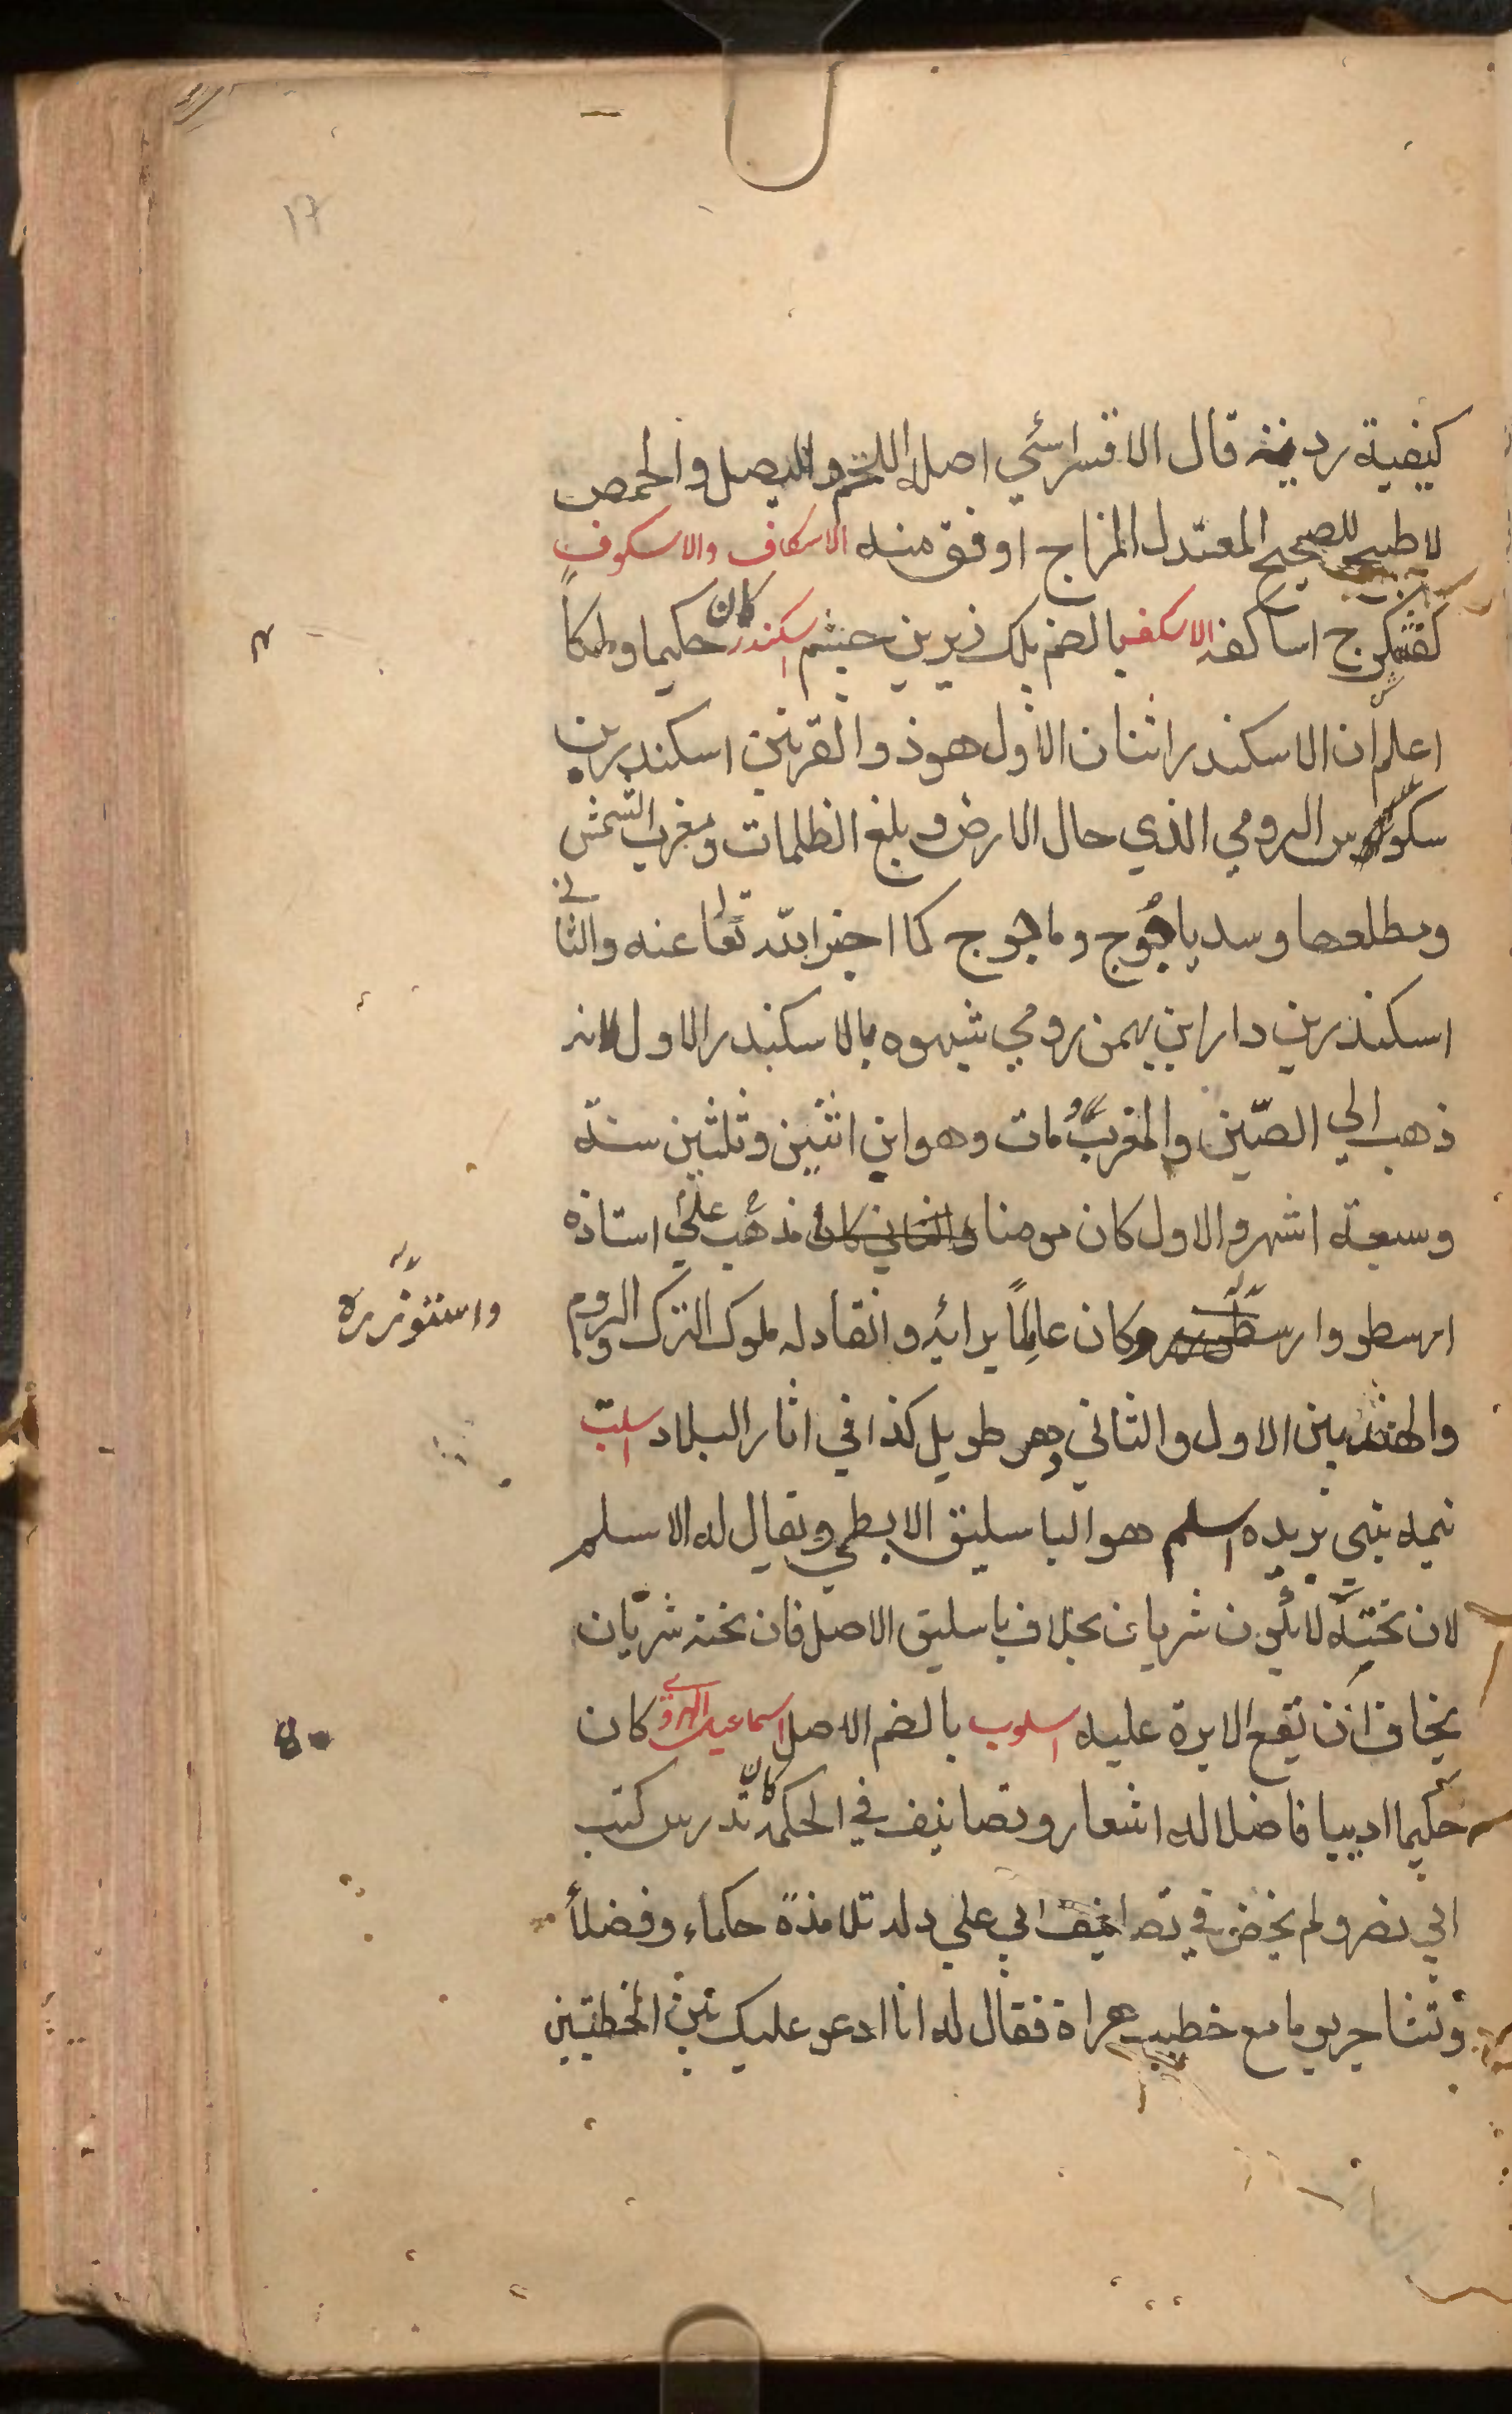 ١٧
كيفية ردية قال الاقسرائي اصله اللحم والبصل والحمص
لا طبيخ للصحيح المعتدل المزاج اوفق منه الاسكاف والاسكوف
كفشگر ج اساكفه الاسكف بالضم پلك زيرين چشم اسكندر كان حكيما وملكاً
اعلم ان الاسكندر اثنان الاول هو ذو القرنين اسكندر بن
الرومي الذي جال الارض و بلغ الظلمات ومغرب الشمس
ومطلعها وسد ياجوج وماجوج كما اخبر الله تعا عنه والثاني
اسكندر بن دارا بن بهمن رومي شبهوه بالاسكندر الاول لانه
ذهب الي الصّين والمغرب ومات وهو ابن اثنين وثلثين سنة
وسبعة اشهر والاول كان مومنا والثاني كان مذهب علي استاذه
ارسطو وكان عالِماً برائه وانقاد له ملوك الترك والروم
واستوزره
والهند بين الاول والثاني دهر طويل كذا في اثار البلاد اسلت
نيمه بيني بريده اسلم هو الباسليق الابطي ويقال له الاسلم
لان تحته لا يكون شريان بخلاف باسليق الاصل فان تحته شريان
يخاف ان تقع الابرة عليه اسلوب بالضم الاصل اسماعيل الهروي كان
حكيما اديبا فاضلا له اشعار وتصانيف في الحكمة كان تدرس كتب
ابي نصر ولم يخض في تصانيف ابي علي وله تلامذة حكماء وفضلأ
وتشاجر يوما مع خطيب هراة فقال له انا ادعو عليك بين الخطبتين